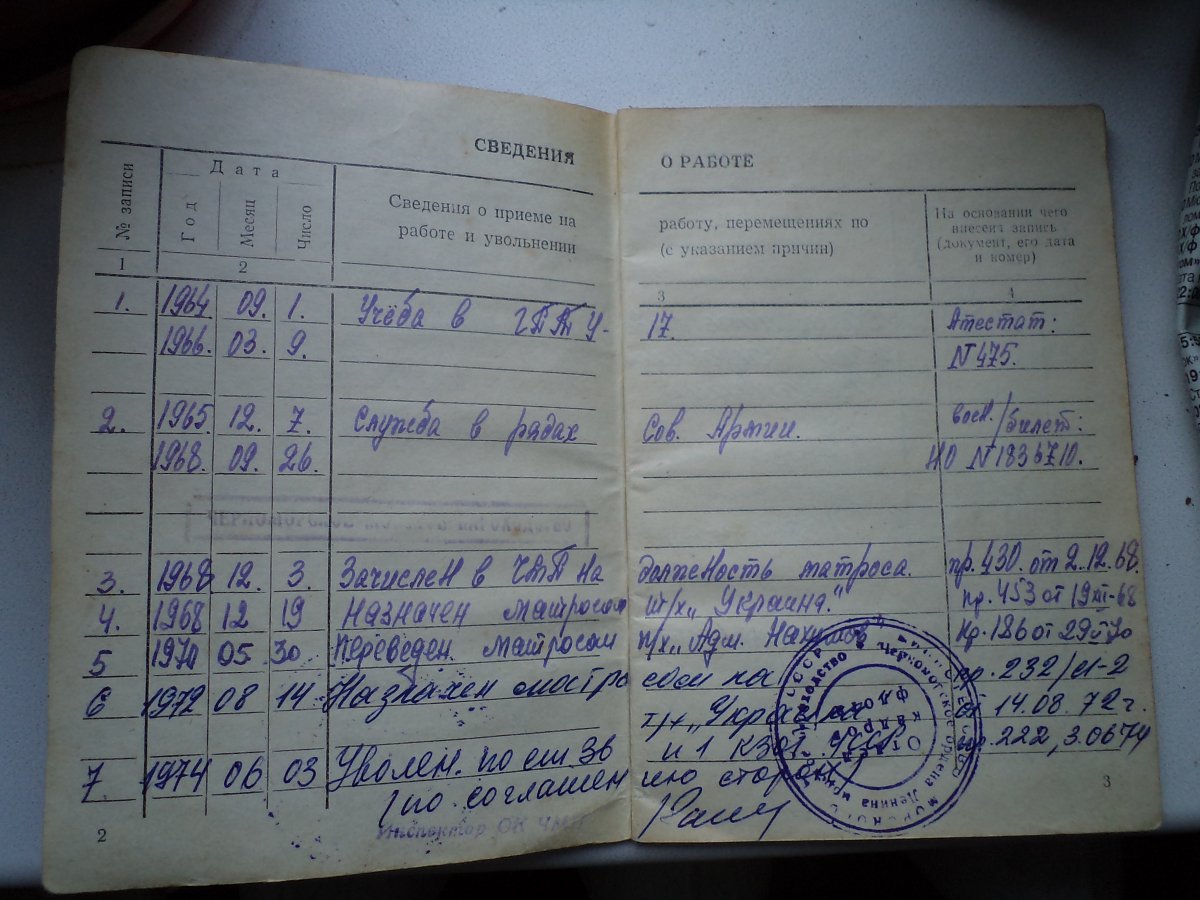 СВЕДЕНИЯ О РАБОТЕ
№ записи
Дата
Год
Месяц
Число
Сведения о приеме на работу, перемещениях по
работе и увольнении (с указанием причин)
На основании чего
внесена запись
(документ, его дата
и номер)
1 2 3 4
1. 1964 09. 1. Учёба в ГПТУ-17. Атестат:
1966. 03. 9. N 475.
2. 1965 12. 7. Служба в рядах Сов. Армии. воен./билет:
1968. 09. 26. НО N 1836710.
3. 1968 12. 3. Зачислен в ЧМП на должность матроса. пр. 430. от 2.12.68.
4. 1968 12 19 Назначен матросом т/х „Украина." пр. 453 от 19 XII-68
5 1970 05. 30 Переведен матросом п/х „Адм. Нахимов" пр. 186 от 29 V 70
6 1972 08 14 Назначен матросом на пр. 232/
т/х „Украина от 14.08.72 г.
7. 1974 06 03 Уволен. по ст. 36 п 1 КЗОТ пр. 222, 3.0674
(по соглашению сторон)
Инспектор ОК ЧМП
Отдел кадров
2
3